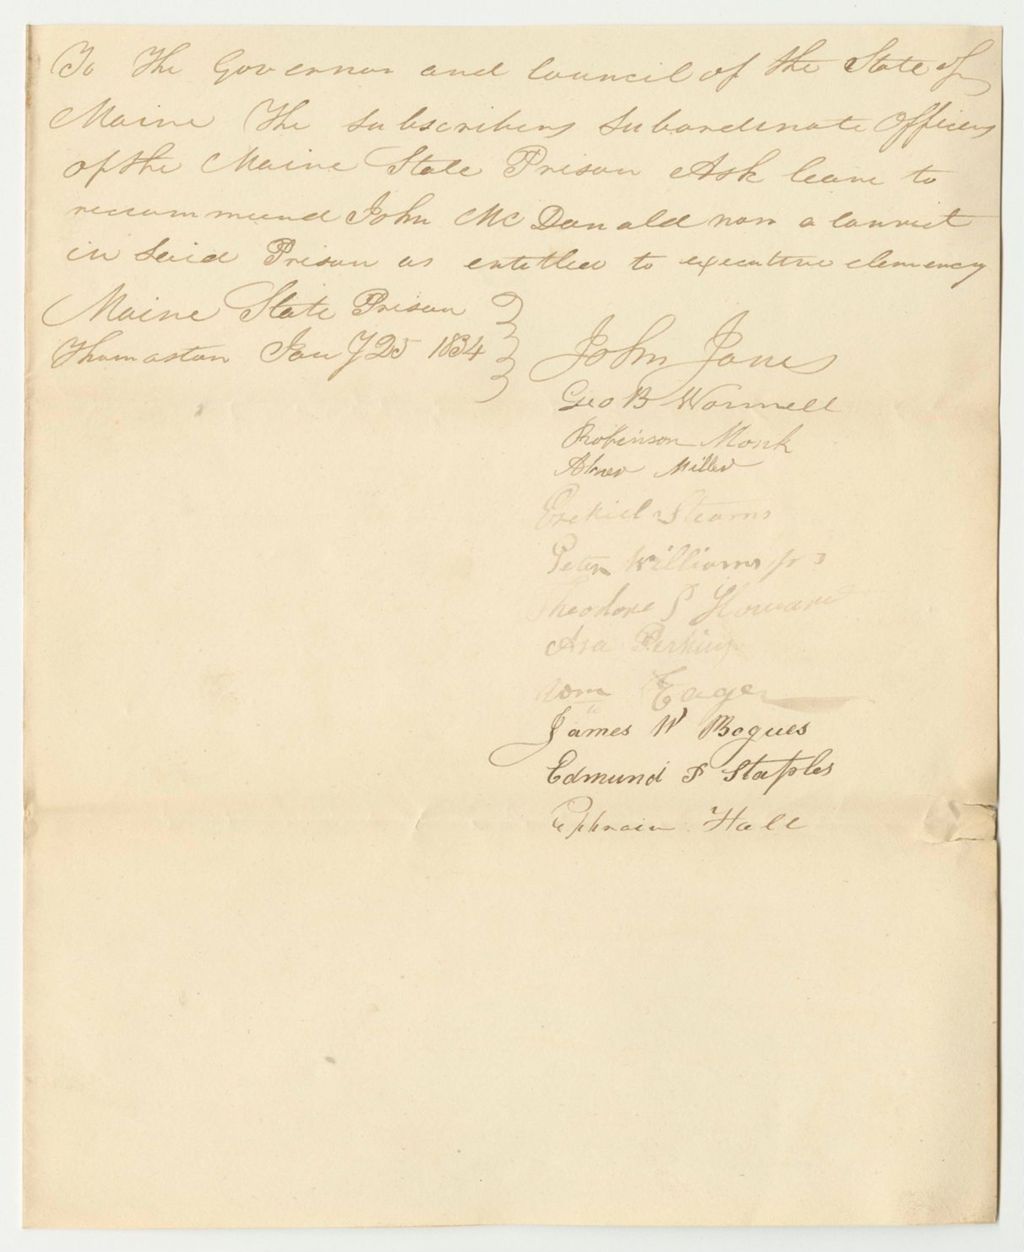 To The Governor and Council of the State of
Maine The Subscribers Subordinate Officers
of the Maine State Prison Ask leave to
reccommend John McDonald now a Convict
in Said Prison as entitled to executive clemency
Maine State Prison
Thomaston Jany 25 1834
John Jones
Geo B Wormell
Robinson Monk
Abner Miller
Ezekiel Stearns
Peter Williams Jr
Theodore P Howard
Asa Perkins
Wm Eager
James W Bogues
Edmund P Staples
Ephraim Hall